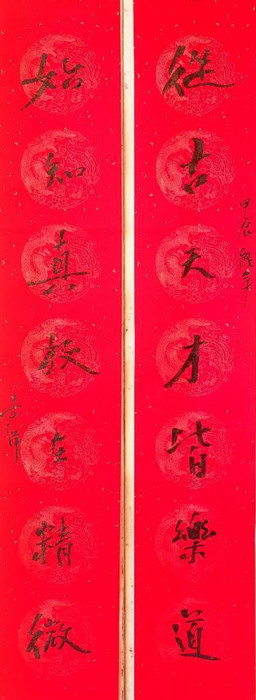 從古天才皆樂道
甲辰龍年
始知真放在精微